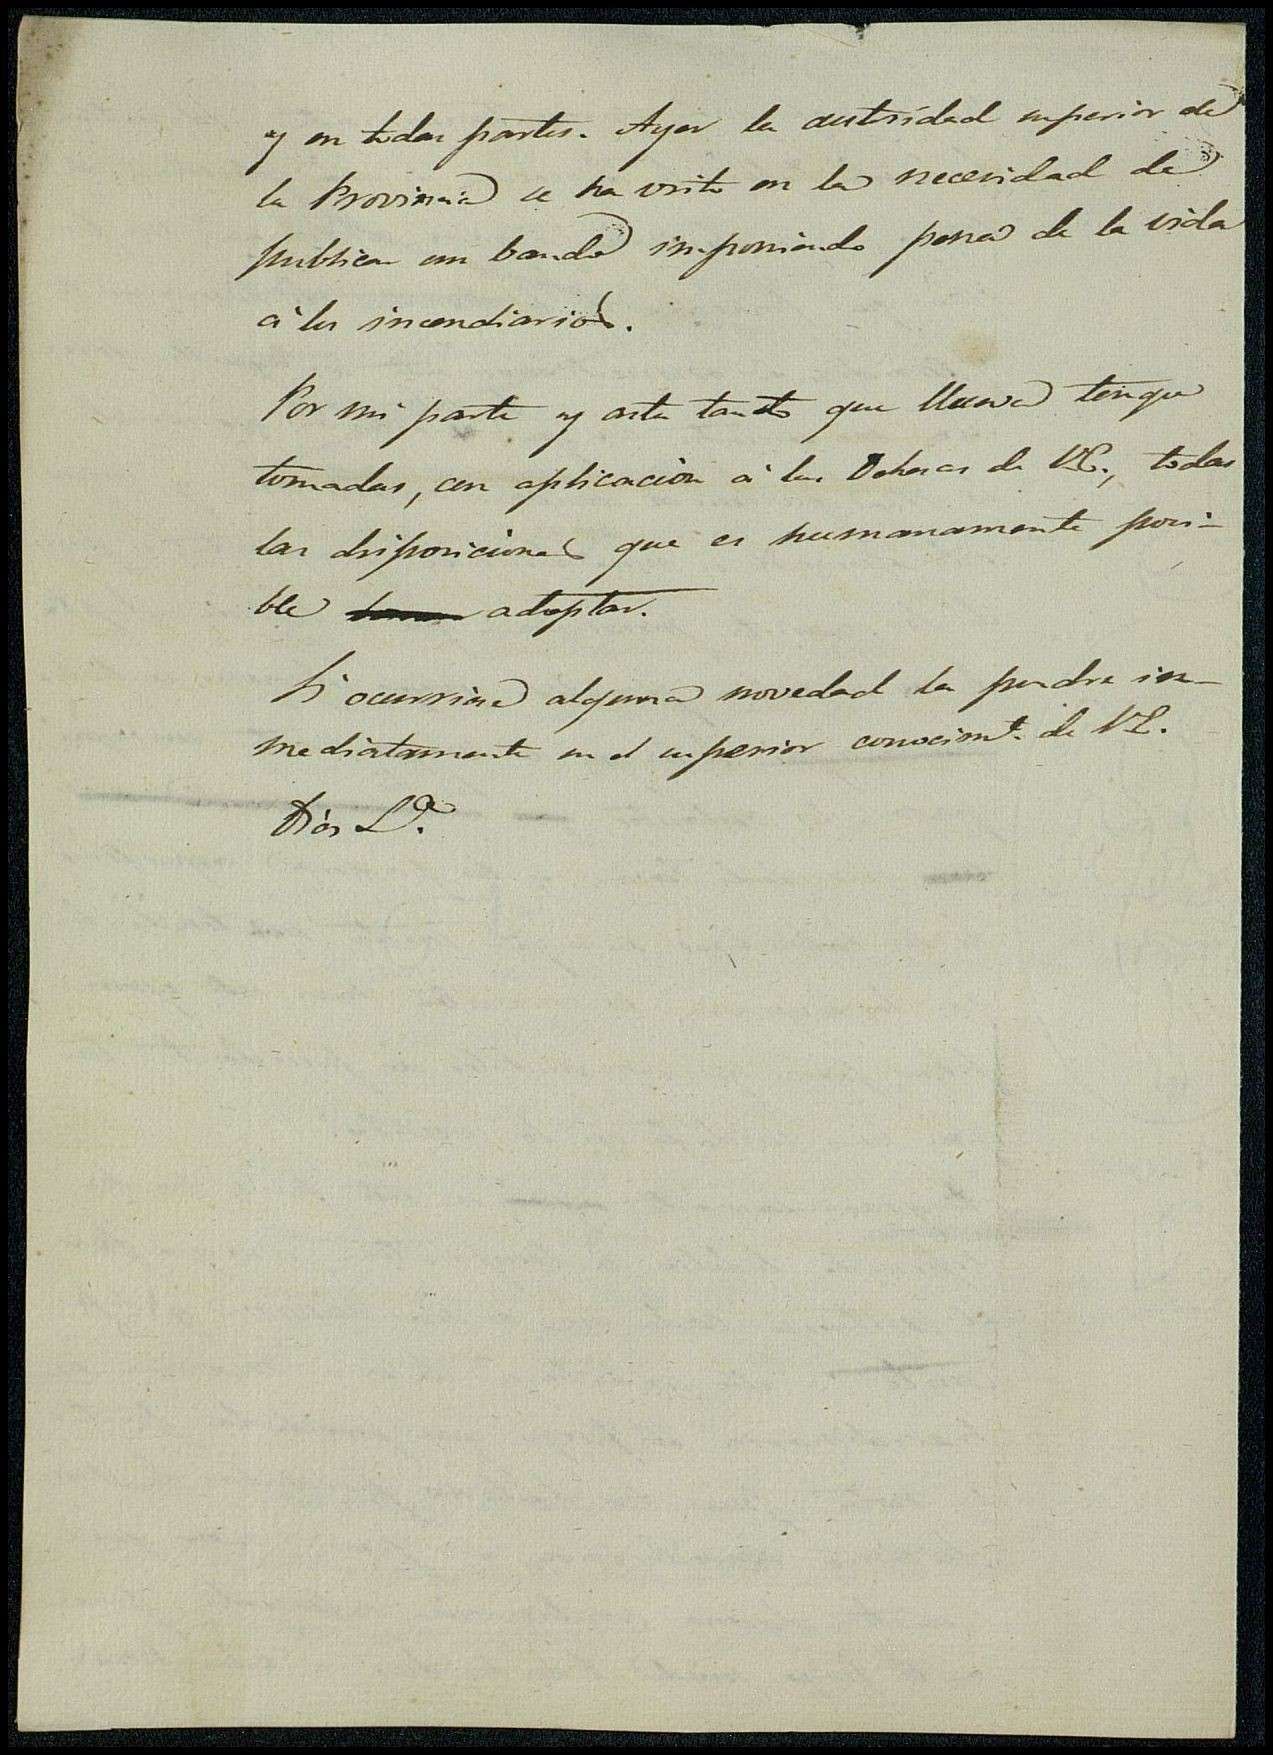 y en todas partes. Ayer la autoridad superior de
la Provincia se ha visto en la necesidad de
publicar un bando imponiendo pena de la vida
á los incendiarios.
Por mi parte y asta tanto que llueva tengo
tomadas, con aplicación á las Dehesas de VE., todas
las disposiciones que es humanamente posi-
ble adoptar.
Si ocurriese alguna novedad la pondre in-
mediatamente en el superior conocimt.º de VE.
Dios &ª.